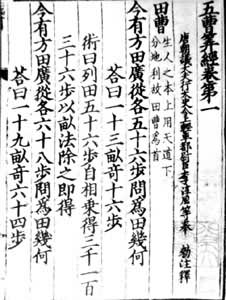 五曹筭經卷第一
唐朝議大夫行太史令上輕車都尉臣李淳風等奉 勑注釋
田曹 生人之本上用天道下
分地利故田曹為首
今有方田廣從各五十六步問為田幾何
荅曰一十三畝奇十六步
術曰列田五十六步自相乘得三千一百
三十六步以畝法除之即得
今有方田廣從各六十八步問為田幾何
荅曰一十九畝奇六十四步